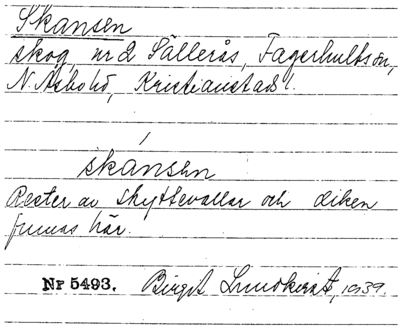 Skansen
skog, nr 2 Sällerås, Fagerhults sn,
N. Åsbo hd, Kristianstads l.
skánsen
Rester av skyttevallar och diken
finnas här.
Nr 5493. Birgit Lundkvist, 1939.